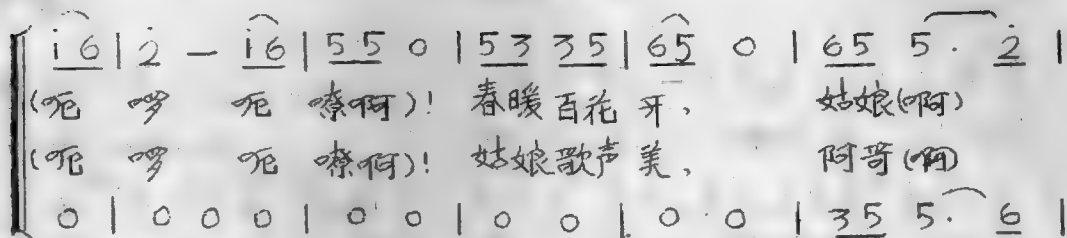 i̇ 6 | 2̇ — i̇ 6 | 5 5 0 | 5 3 3 5 | 6 5 0 | 6 5 5 · 2̇ |
(呃 啰 呃 嘹啊)! 春暖百花牙, 姑娘(啊)
(呃 啰 呃 嘹啊)! 姑娘歌声美, 阿哥(啊)
0 | 0 0 0 | 0 0 | 0 0 | 0 0 | 3 5 5 · 6 |